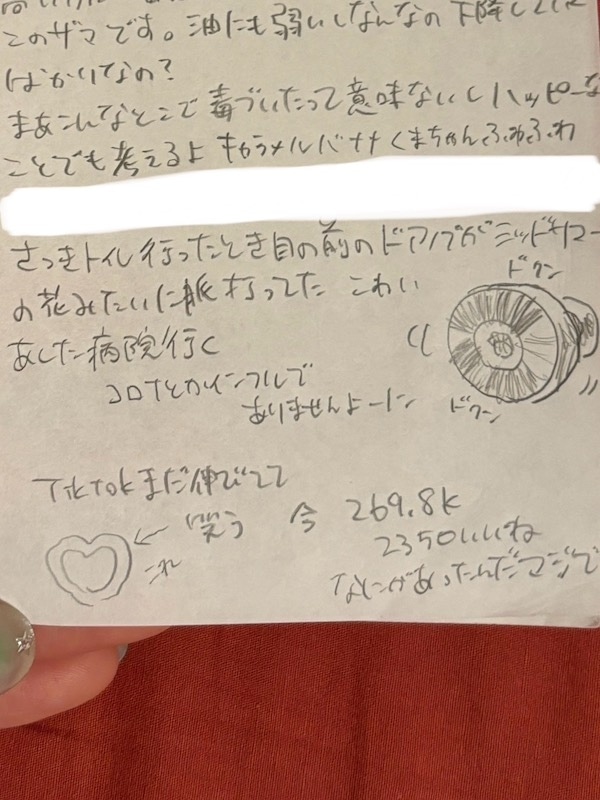 このザマです。油にも弱いしなんなの下降しして
ばかいなの?
まあこんなとこで毒づいたって意味ないしハッピーな
ことでも考えるよ キャラメルバナナくまちゃんふわふわ
さっきトイレ行ったとき目の前のドアノブがミッドサマー
の花みたいに脈打ってた こわい
ドクン
あした病院行く
コロナとかインフルで
ありませんよーに
ドクン
TikTokまだ伸びてて
笑う 今 269.8K
これ
2350いいね
なにがあったんだマジで